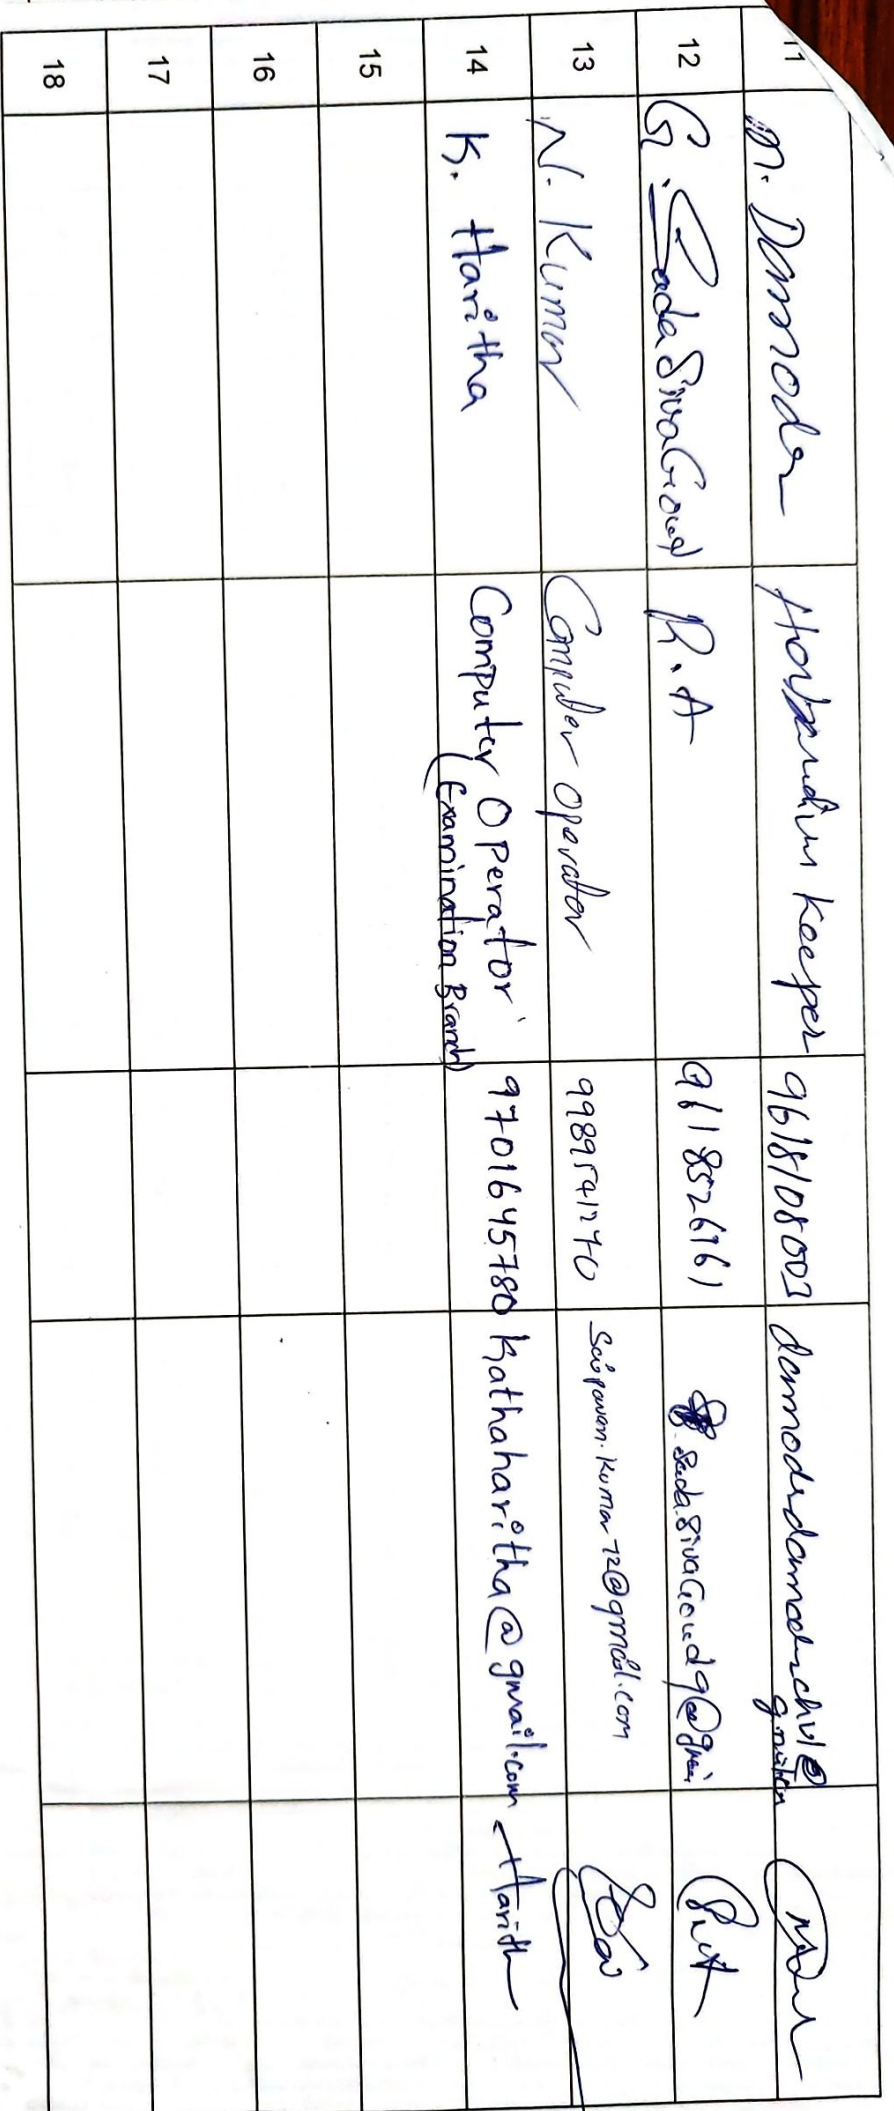 11 M. Damodar Harbarium Keeper 9618108003 damodardamodarchvl@
gmail.com
12 G. SadaSivaGoud R.A 96118526161 SadaSivaGoud9@gmai
13 N. Kumar Computer Operator 9989541270 Saipavan.kumar72@gmail.com
14 K. Haritha Computer Operator 9701645780 Kathaharitha@gmail.com Harith
(Examination Branch)
15
16
17
18